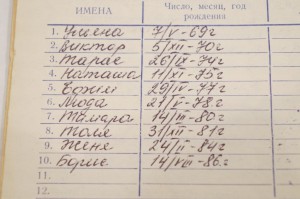 ИМЕНА
Число, месяц, год
рождения
1. 7/V-69г
2. Виктор 5/XII-70г
3. Тарас 26/IV-74г
4. Наташа 11/XI-75г
5. 29/IV-77г
6. Люда 21/V-78г
7. Тамара 14/III-80г
8. Толя 3/XII-81г
9. Женя 24/II-84г
10. Борис 14/VIII-86г
11.
12.